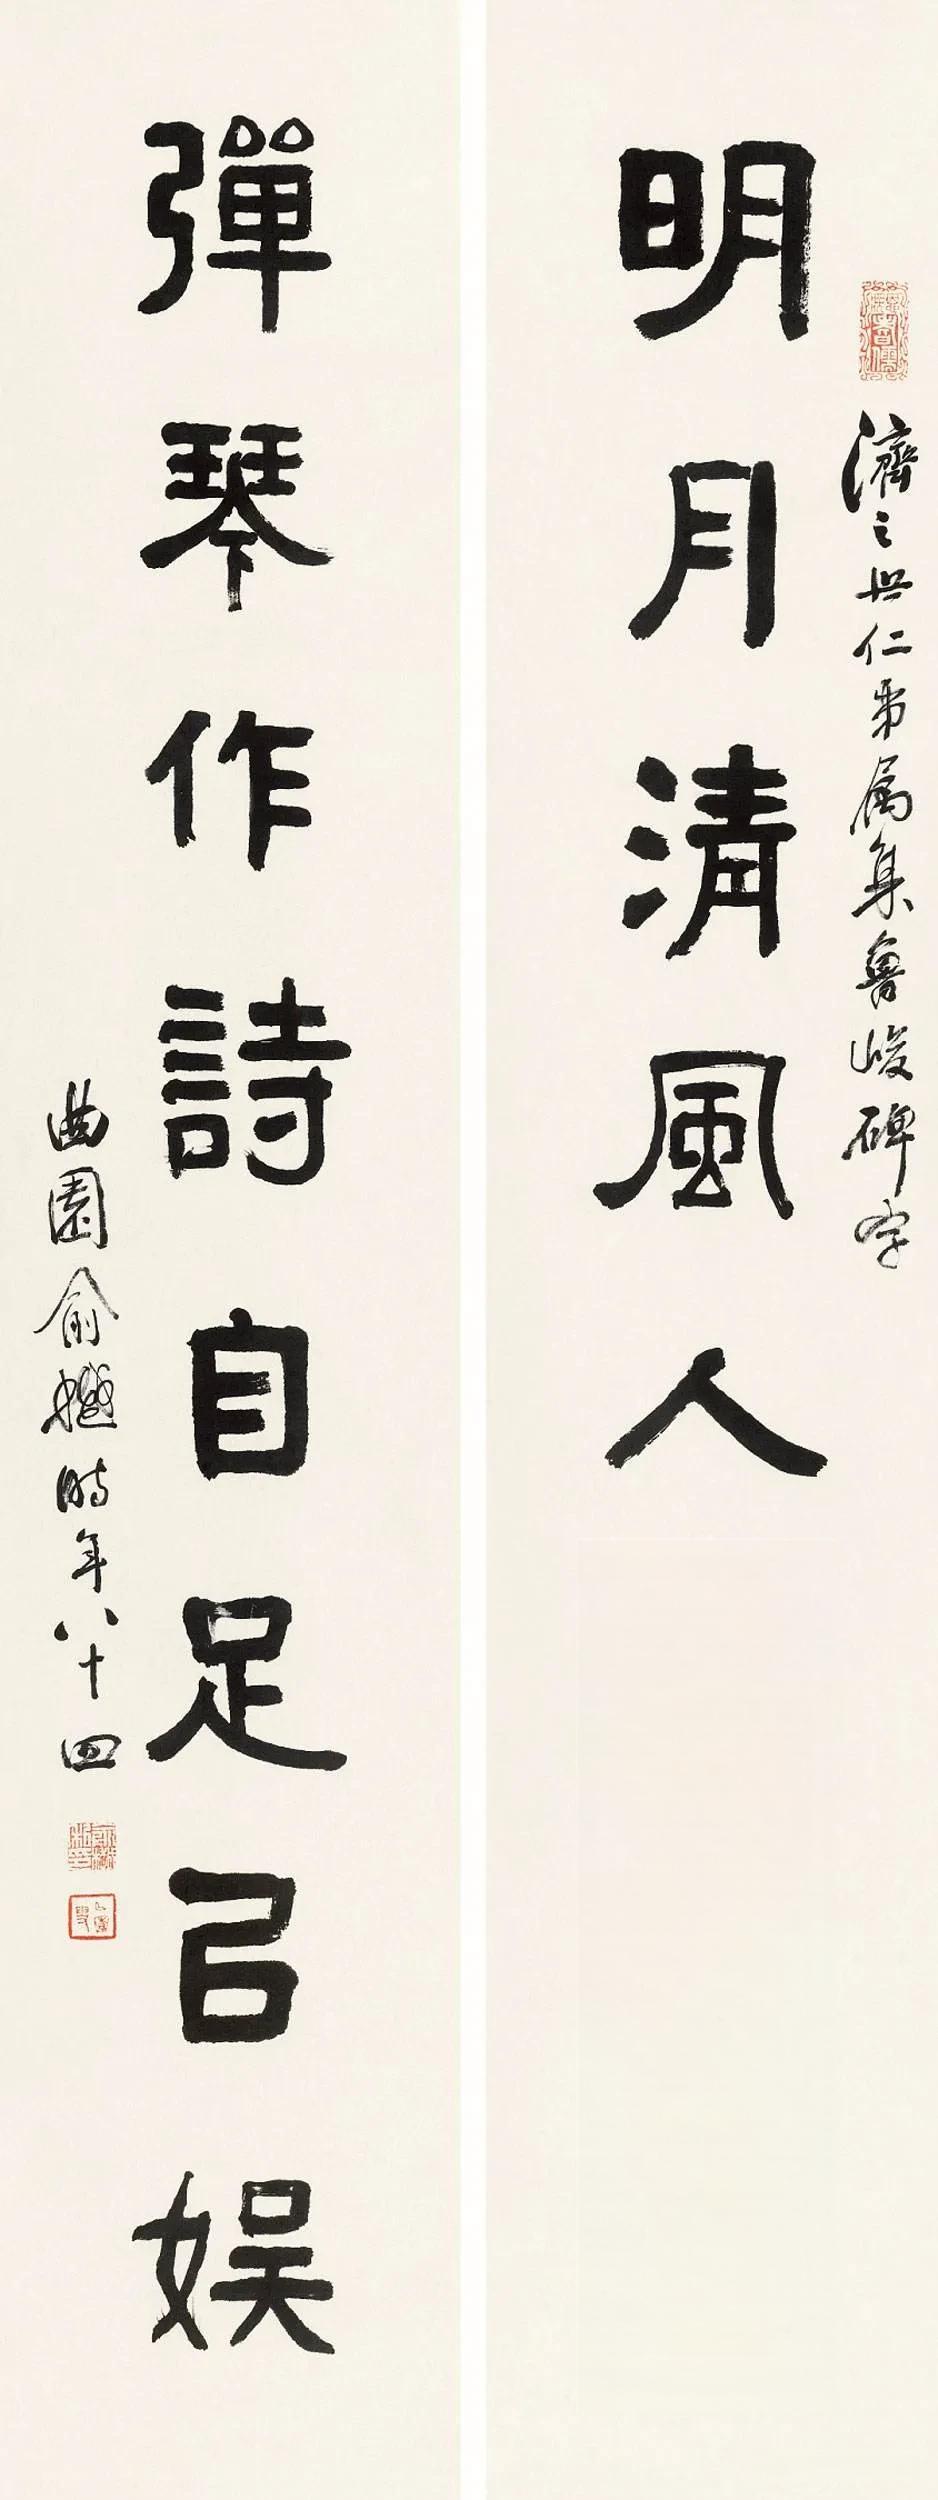 濟之世仁弟属集魯峻碑字
明月清風人
彈琴作詩自足㠯娛
曲園俞樾時年八十四